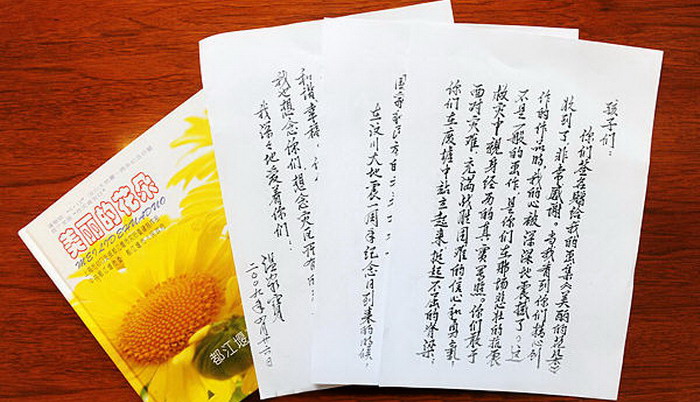 孩子们：
你们签名赠给我的画集《美丽的花朵》
收到了，非常感谢。当我看到你们精心创
作的作品时，我的心被深深地震撼了。这
不是一般的画作，是你们在那场悲壮的抗震
救灾中亲身经历的真实写照。你们敢于
面对灾难，充满战胜困难的信心和勇气，
你们在废墟中站立起来，挺起不屈的脊梁。
在汶川大地震一周年纪念日到来的时候，
和谐幸福
我也想念你们，想念灾区所有的
我深深地爱着你们！
温家宝
二〇〇九年四月廿六日
美丽的花朵
MEILIDEHUADUO
都江堰